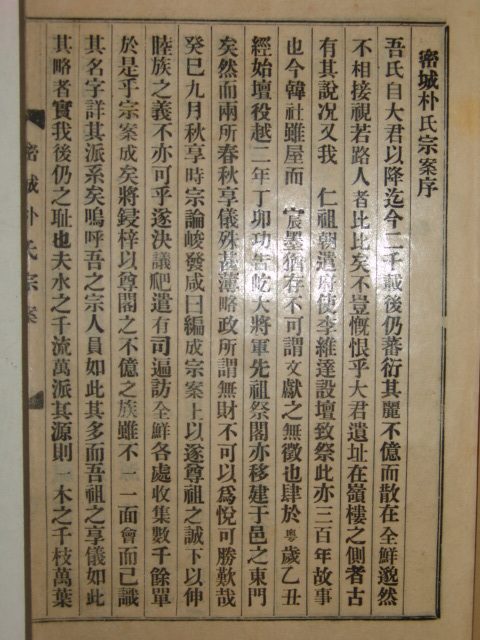 密城朴氏宗案序
吾氏自大君以降迄今二千載後仍蕃衍其麗不億而散在全鮮邈然
不相接視若路人者比比矣不豈慨恨乎大君遺址在嶺樓之側者古
有其說况又我 仁祖朝遣府使李維達設壇致祭此亦三百年故事
也今韓社雖屋而 宸墨猶存不可謂文獻之無徵也肆於粵歲乙丑
經始壇役越二年丁卯功告屹大將軍先祖祭閣亦移建于邑之東門
矣然而兩所春秋享儀殊甚薄略政所謂無財不可以爲悅可勝歎哉
癸巳九月秋享時宗論峻發咸曰編成宗案上以遂尊祖之誠下以伸
睦族之義不亦可乎遂決議爮遣有司遍訪全鮮各處收集數千餘單
於是乎宗案成矣將鋟梓以尊閣之不億之族雖不一一面會而已識
其名字詳其派系矣嗚呼吾之宗人員如此其多而吾祖之享儀如此
其略者實我後仍之耻也夫水之千流萬派其源則一木之千枝萬葉
密城朴氏宗案